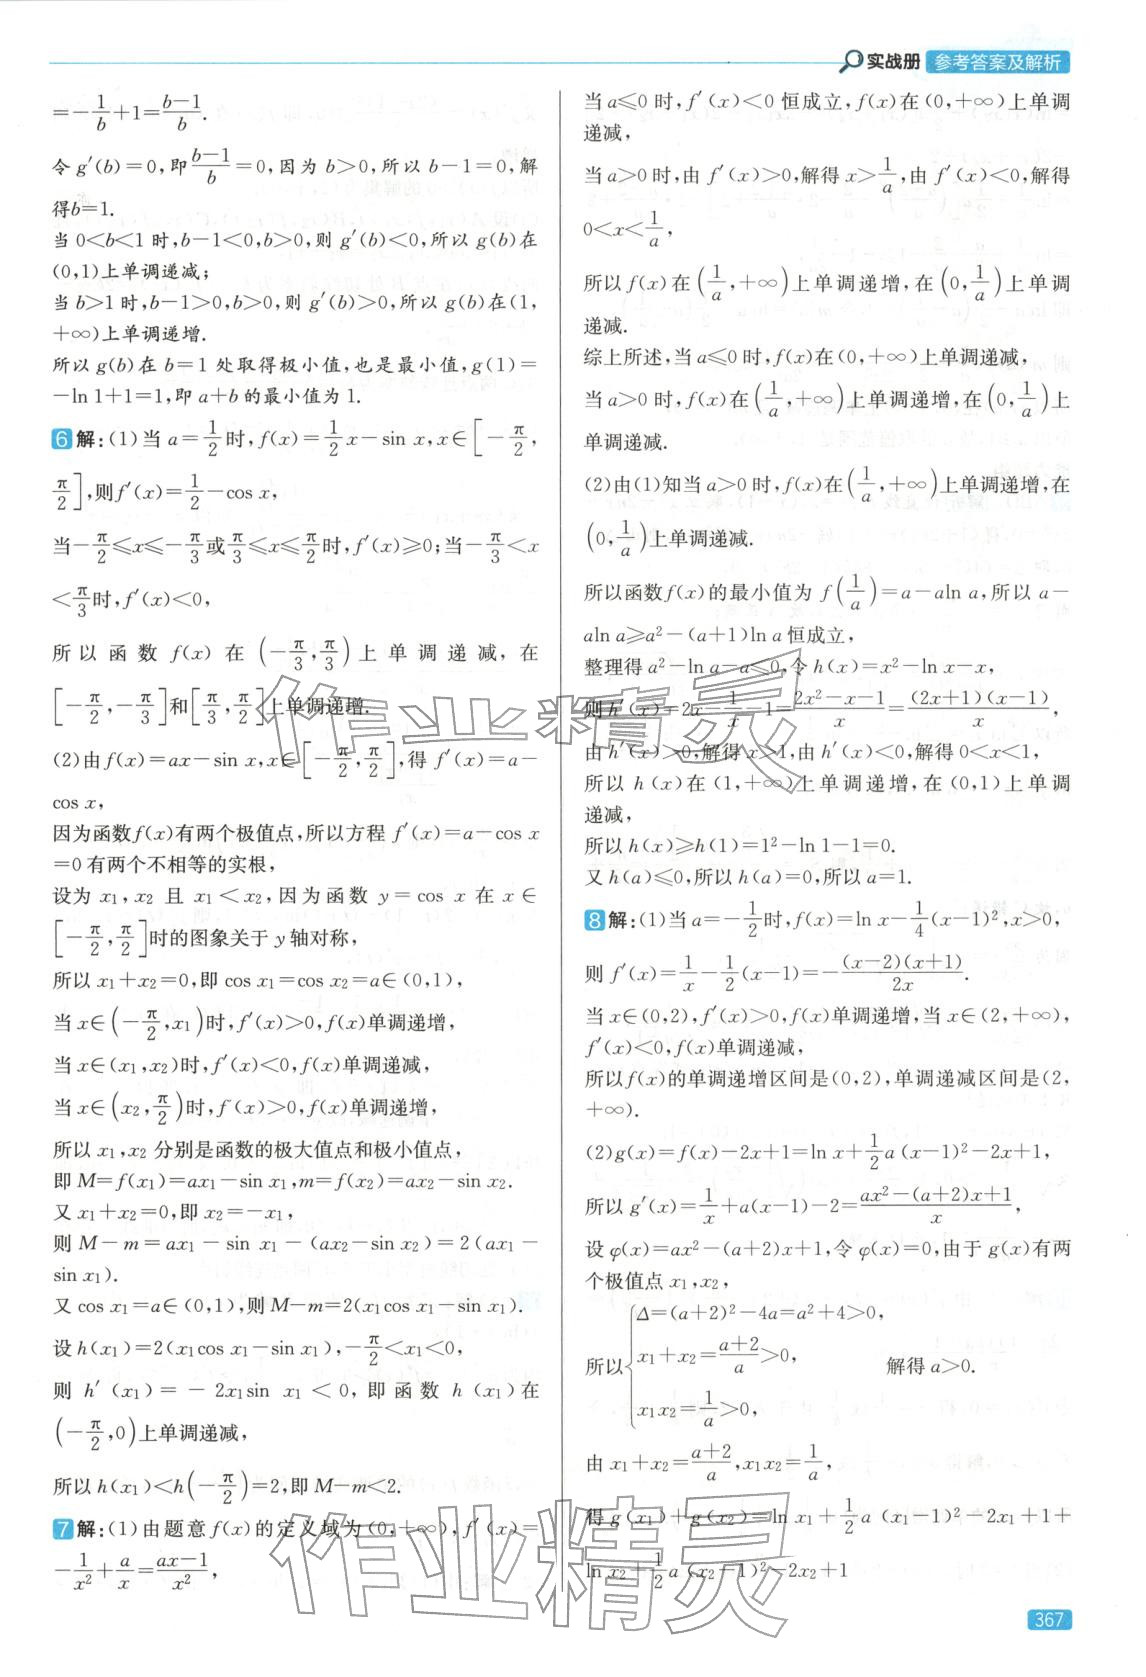 实战册 参考答案及解析
=-1/b+1=(b-1)/b.
令 g′(b)=0,即(b-1)/b=0,因为 b>0,所以 b-1=0,解
得b=1.
当 0<b<1 时,b-1<0,b>0,则 g′(b)<0,所以 g(b)在
(0,1)上单调递减;
当 b>1 时,b-1>0,b>0,则 g′(b)>0,所以 g(b)在(1,
+∞)上单调递增.
所以 g(b)在 b=1 处取得极小值,也是最小值,g(1)=
-ln 1+1=1,即 a+b 的最小值为 1.
6 解:(1)当 a=1/2时,f(x)=1/2 x-sin x,x∈[-π/2,
π/2],则f′(x)=1/2-cos x,
当-π/2≤x≤-π/3或π/3≤x≤π/2时,f′(x)≥0;当-π/3<x
<π/3时,f′(x)<0,
所以函数 f(x) 在 (-π/3,π/3) 上单调递减,在
[-π/2,-π/3]和[π/3,π/2]上单调递增.
(2)由f(x)=ax-sin x,x∈[-π/2,π/2],得 f′(x)=a-
cos x,
因为函数f(x)有两个极值点,所以方程 f′(x)=a-cos x
=0有两个不相等的实根,
设为 x1,x2 且 x1<x2,因为函数 y=cos x 在 x∈
[-π/2,π/2]时的图象关于 y轴对称,
所以 x1+x2=0,即 cos x1=cos x2=a∈(0,1),
当 x∈(-π/2,x1)时,f′(x)>0,f(x)单调递增,
当 x∈(x1,x2)时,f′(x)<0,f(x)单调递减,
当 x∈(x2,π/2)时,f′(x)>0,f(x)单调递增,
所以 x1,x2 分别是函数的极大值点和极小值点,
即 M=f(x1)=ax1-sin x1,m=f(x2)=ax2-sin x2.
又 x1+x2=0,即 x2=-x1,
则 M-m=ax1-sin x1-(ax2-sin x2)=2(ax1-
sin x1).
又 cos x1=a∈(0,1),则 M-m=2(x1cos x1-sin x1).
设 h(x1)=2(x1cos x1-sin x1),-π/2<x1<0,
则 h′(x1)=-2x1sin x1<0,即函数 h(x1)在
(-π/2,0)上单调递减,
所以 h(x1)<h(-π/2)=2,即 M-m<2.
7 解:(1)由题意f(x)的定义域为(0,+∞),f′(x)=
-1/x²+a/x=(ax-1)/x²,
当 a≤0 时,f′(x)<0 恒成立,f(x)在(0,+∞)上单调
递减,
当 a>0 时,由 f′(x)>0,解得 x>1/a,由 f′(x)<0,解得
0<x<1/a,
所以 f(x)在(1/a,+∞)上单调递增,在(0,1/a)上单调
递减.
综上所述,当 a≤0 时,f(x)在(0,+∞)上单调递减,
当 a>0 时,f(x)在(1/a,+∞)上单调递增,在(0,1/a)上
单调递减.
(2)由(1)知当 a>0 时,f(x)在(1/a,+∞)上单调递增,在
(0,1/a)上单调递减.
所以函数f(x)的最小值为 f(1/a)=a-aln a,所以 a-
aln a≥a²-(a+1)ln a 恒成立,
整理得 a²-ln a-a≤0,令 h(x)=x²-ln x-x,
则 h′(x)=2x-1/x-1=(2x²-x-1)/x=(2x+1)(x-1)/x,
由 h′(x)>0,解得 x>1,由 h′(x)<0,解得 0<x<1,
所以 h(x)在(1,+∞)上单调递增,在(0,1)上单调
递减,
所以 h(x)≥h(1)=1²-ln 1-1=0.
又 h(a)≤0,所以 h(a)=0,所以 a=1.
8 解:(1)当 a=-1/2时,f(x)=ln x-1/4(x-1)²,x>0,
则 f′(x)=1/x-1/2(x-1)=-(x-2)(x+1)/2x.
当 x∈(0,2),f′(x)>0,f(x)单调递增,当 x∈(2,+∞),
f′(x)<0,f(x)单调递减,
所以f(x)的单调递增区间是(0,2),单调递减区间是(2,
+∞).
(2)g(x)=f(x)-2x+1=ln x+1/2 a(x-1)²-2x+1,
所以 g′(x)=1/x+a(x-1)-2=(ax²-(a+2)x+1)/x,
设 φ(x)=ax²-(a+2)x+1,令 φ(x)=0,由于 g(x)有两
个极值点 x1,x2,
Δ=(a+2)²-4a=a²+4>0,
所以{x1+x2=(a+2)/a>0, 解得 a>0.
x1x2=1/a>0,
由 x1+x2=(a+2)/a,x1x2=1/a,
得 g(x1)+g(x2)=ln x1+1/2 a(x1-1)²-2x1+1+
ln x2+1/2 a(x2-1)²-2x2+1
作业精灵
作业精灵
367